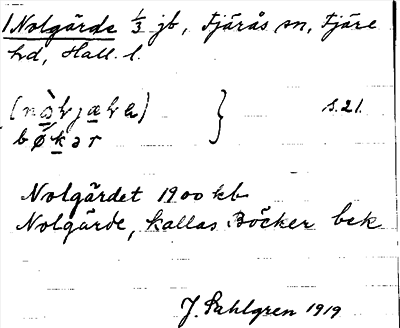 1 Nolgärde 1/3 jb, Fjärås sn, Fjäre
hd, Hall. l.
s. 21.
bö̀kər
Nolgärdet 1900 kb
Nolgärde, kallas Böcker bek
J. Sahlgren 1919